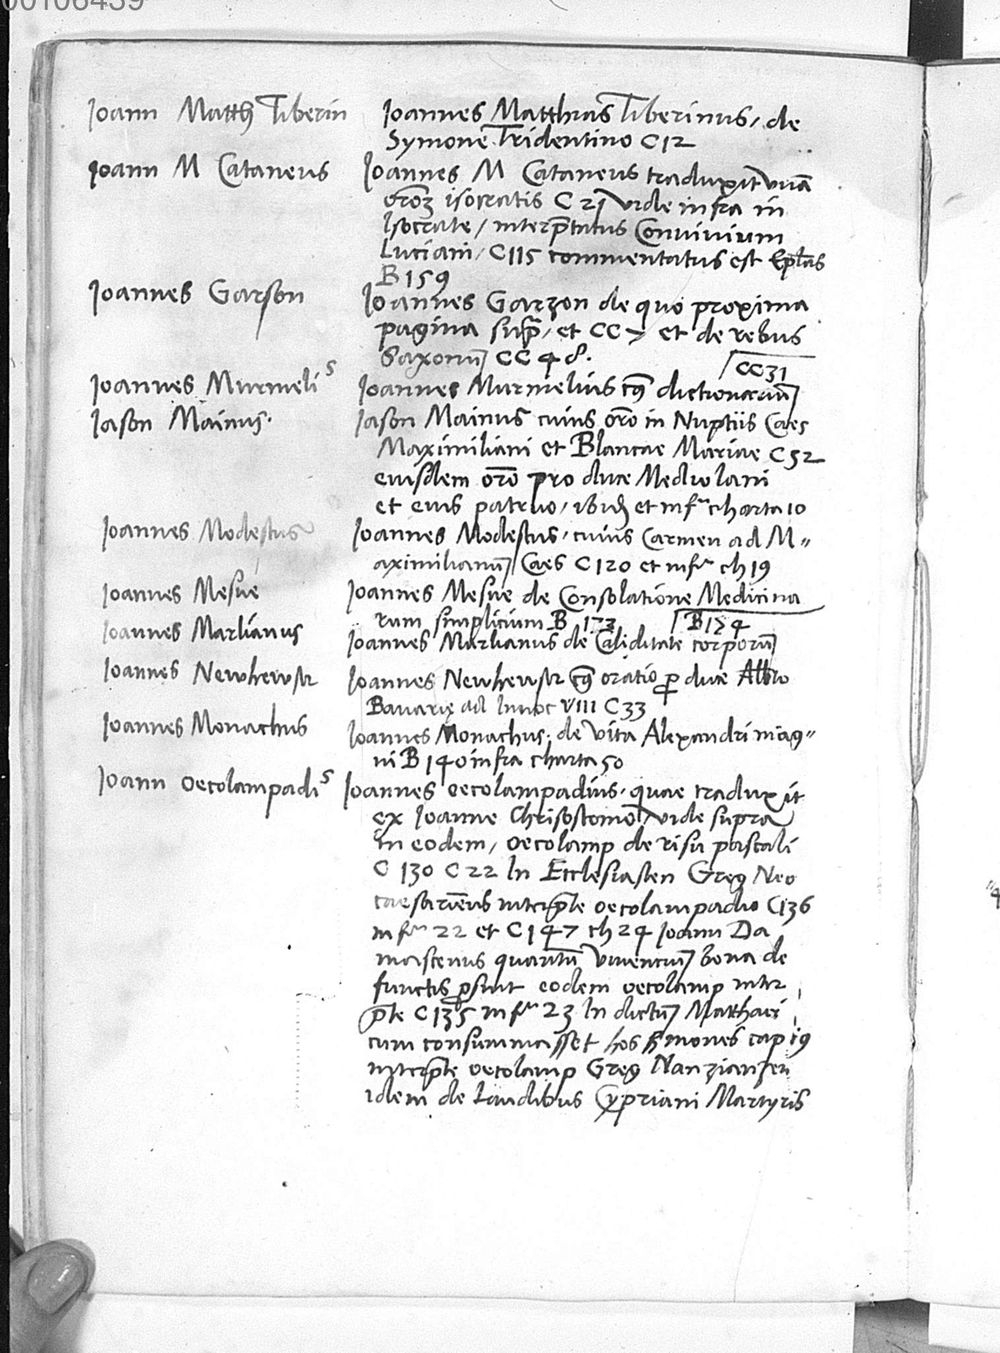 00106439
Ioann Matth Tiberin Ioannes Matthias Tiberinus, de
Symone Tridentino C 12
Ioann M Cataneus Ioannes M Cataneus traduxit unā
orōꝫ isocratis C 21 vide infra in
Isocrate, interp̄tatus Convivium
Luciani, C 115 commentatus est Ep̄las
B 159
Ioannes Garson Ioannes Garzon de quo proxima
pagina sup̄, et CC 7 et de rebus
Saxonū CC 48.
CC 31
Ioannes Murmeliˢ Ioannes Murmelius dictionariū
Iason Mainus. Iason Mainus cuius orō in Nuptiis Caes
Maximiliani et Blancae Mariae C 52
eiusdem orō pro duce Mediolani
et eius patruo, ibid et infr charta 10
Ioannes Modestus Ioannes Modestus, cuius Carmen ad M"
aximilianū Caes C 120 et infr ch 19
Ioannes Mesue Ioannes Mesue de Consolatione Medicina
rum simplicium B 173 B 174
Ioannes Marlianus Ioannes Marlianus de Caliditate corporū
Ioannes Newhewser Ioannes Newhewser oratio ꝑ duce Alb̄to
Bavarię ad Innoc VIII C 33
Ioannes Monachus Ioannes Monachus, de vita Alexandri mag"
ni B 140 infra charta 50
Ioann Oecolampadiˢ Ioannes oecolampadius, quae traduxit
ex Ioanne Chrisostomo, vide supra
in eodem, oecolamp de risu pascali
C 130 C 22 In Ecclesiasten Greg Neo
caesariēns interp̄te oecolampadio C 136
infr 22 et C 147 ch 24 Ioann Da
mascenus quantū viventiū bona de
functis ꝓsint eodem oecolamp inter
p̄te C 135 infr 23 In dictū Matthaei
cum consummasset hos sermones cap 19
interp̄te oecolamp Greg Nanzianzen
idem de Laudibus Cypriani Martyris